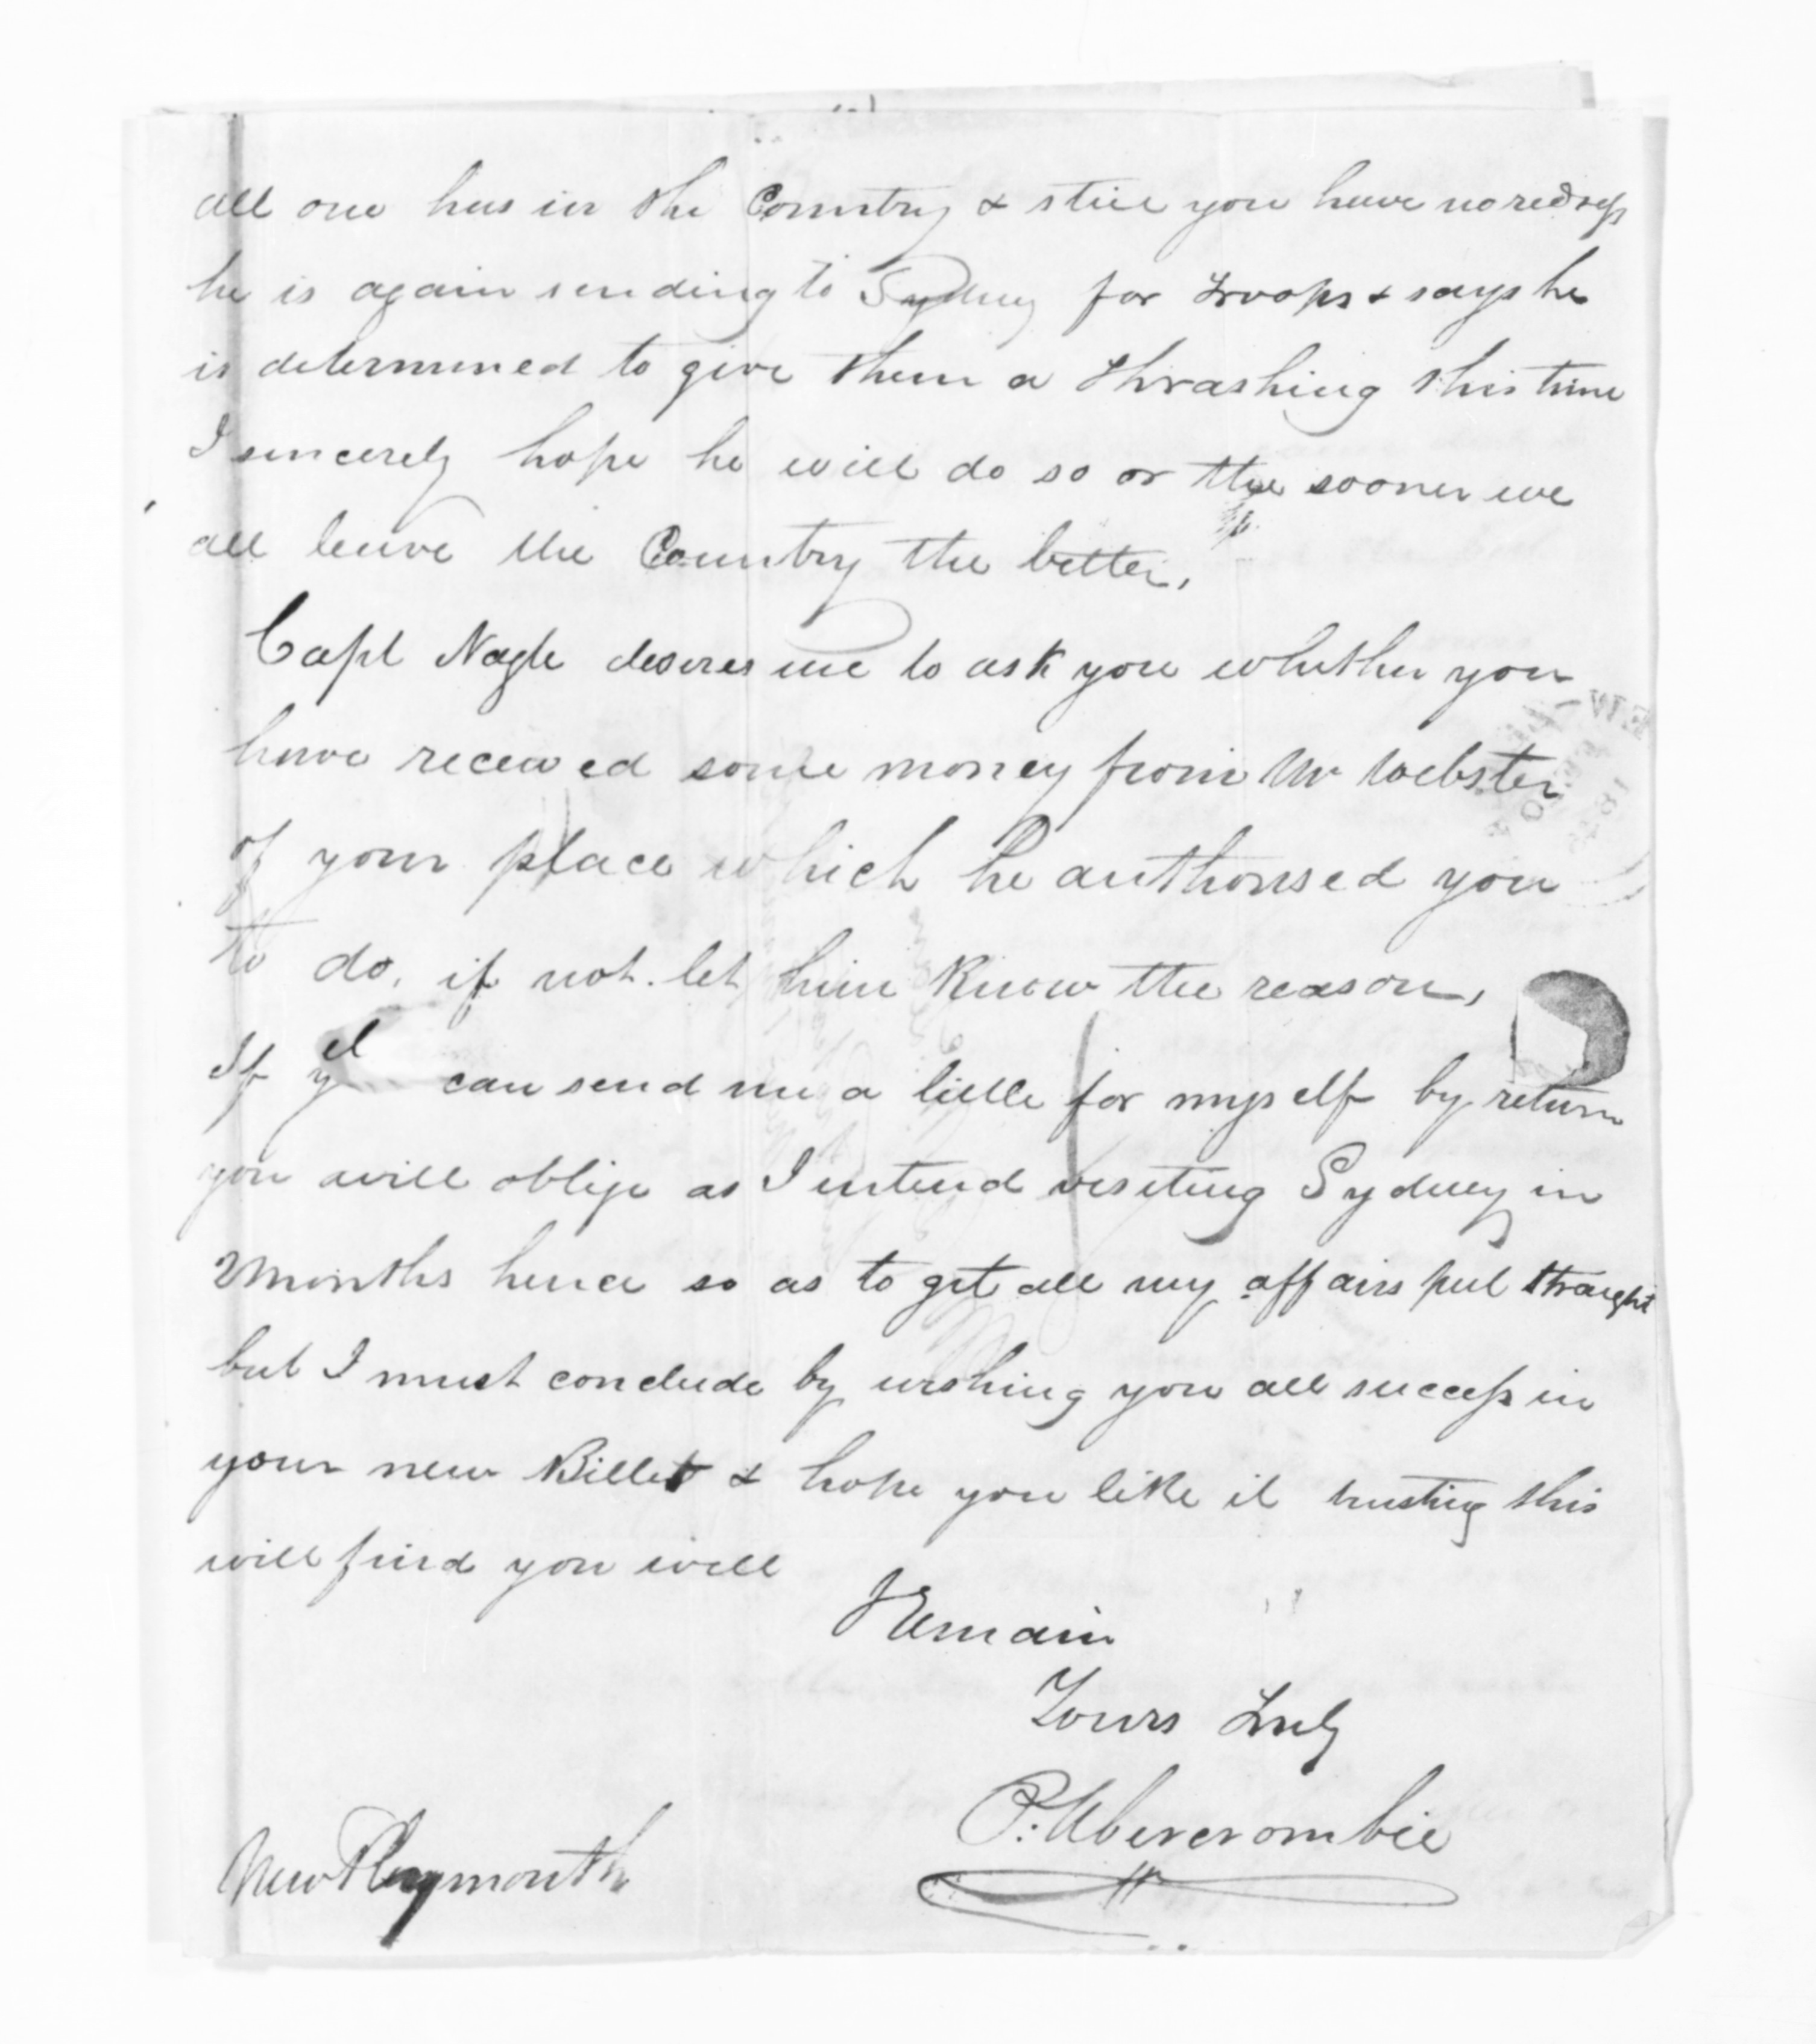 all one has in the Country & still you have no redress
he is again sending to Sydney for Troops & says he
is determined to give them a thrashing this time
I sincerely hope he will do so or the sooner we
all leave the Country the better,
Capt Nagle desires me to ask you whether you
have received some money from Mr Webster
of your place which he authorised you
to do, if not. let him know the reason,
If y can send me a little for myself by return
you will oblige as I intend visiting Sydney in
2 months hence so as to get all my affairs put straight
but I must conclude by wishing you all success in
your new Billet & hope you like it trusting this
will find you well
I Remain
Yours Truly
P. Abercrombie
New Playmouth